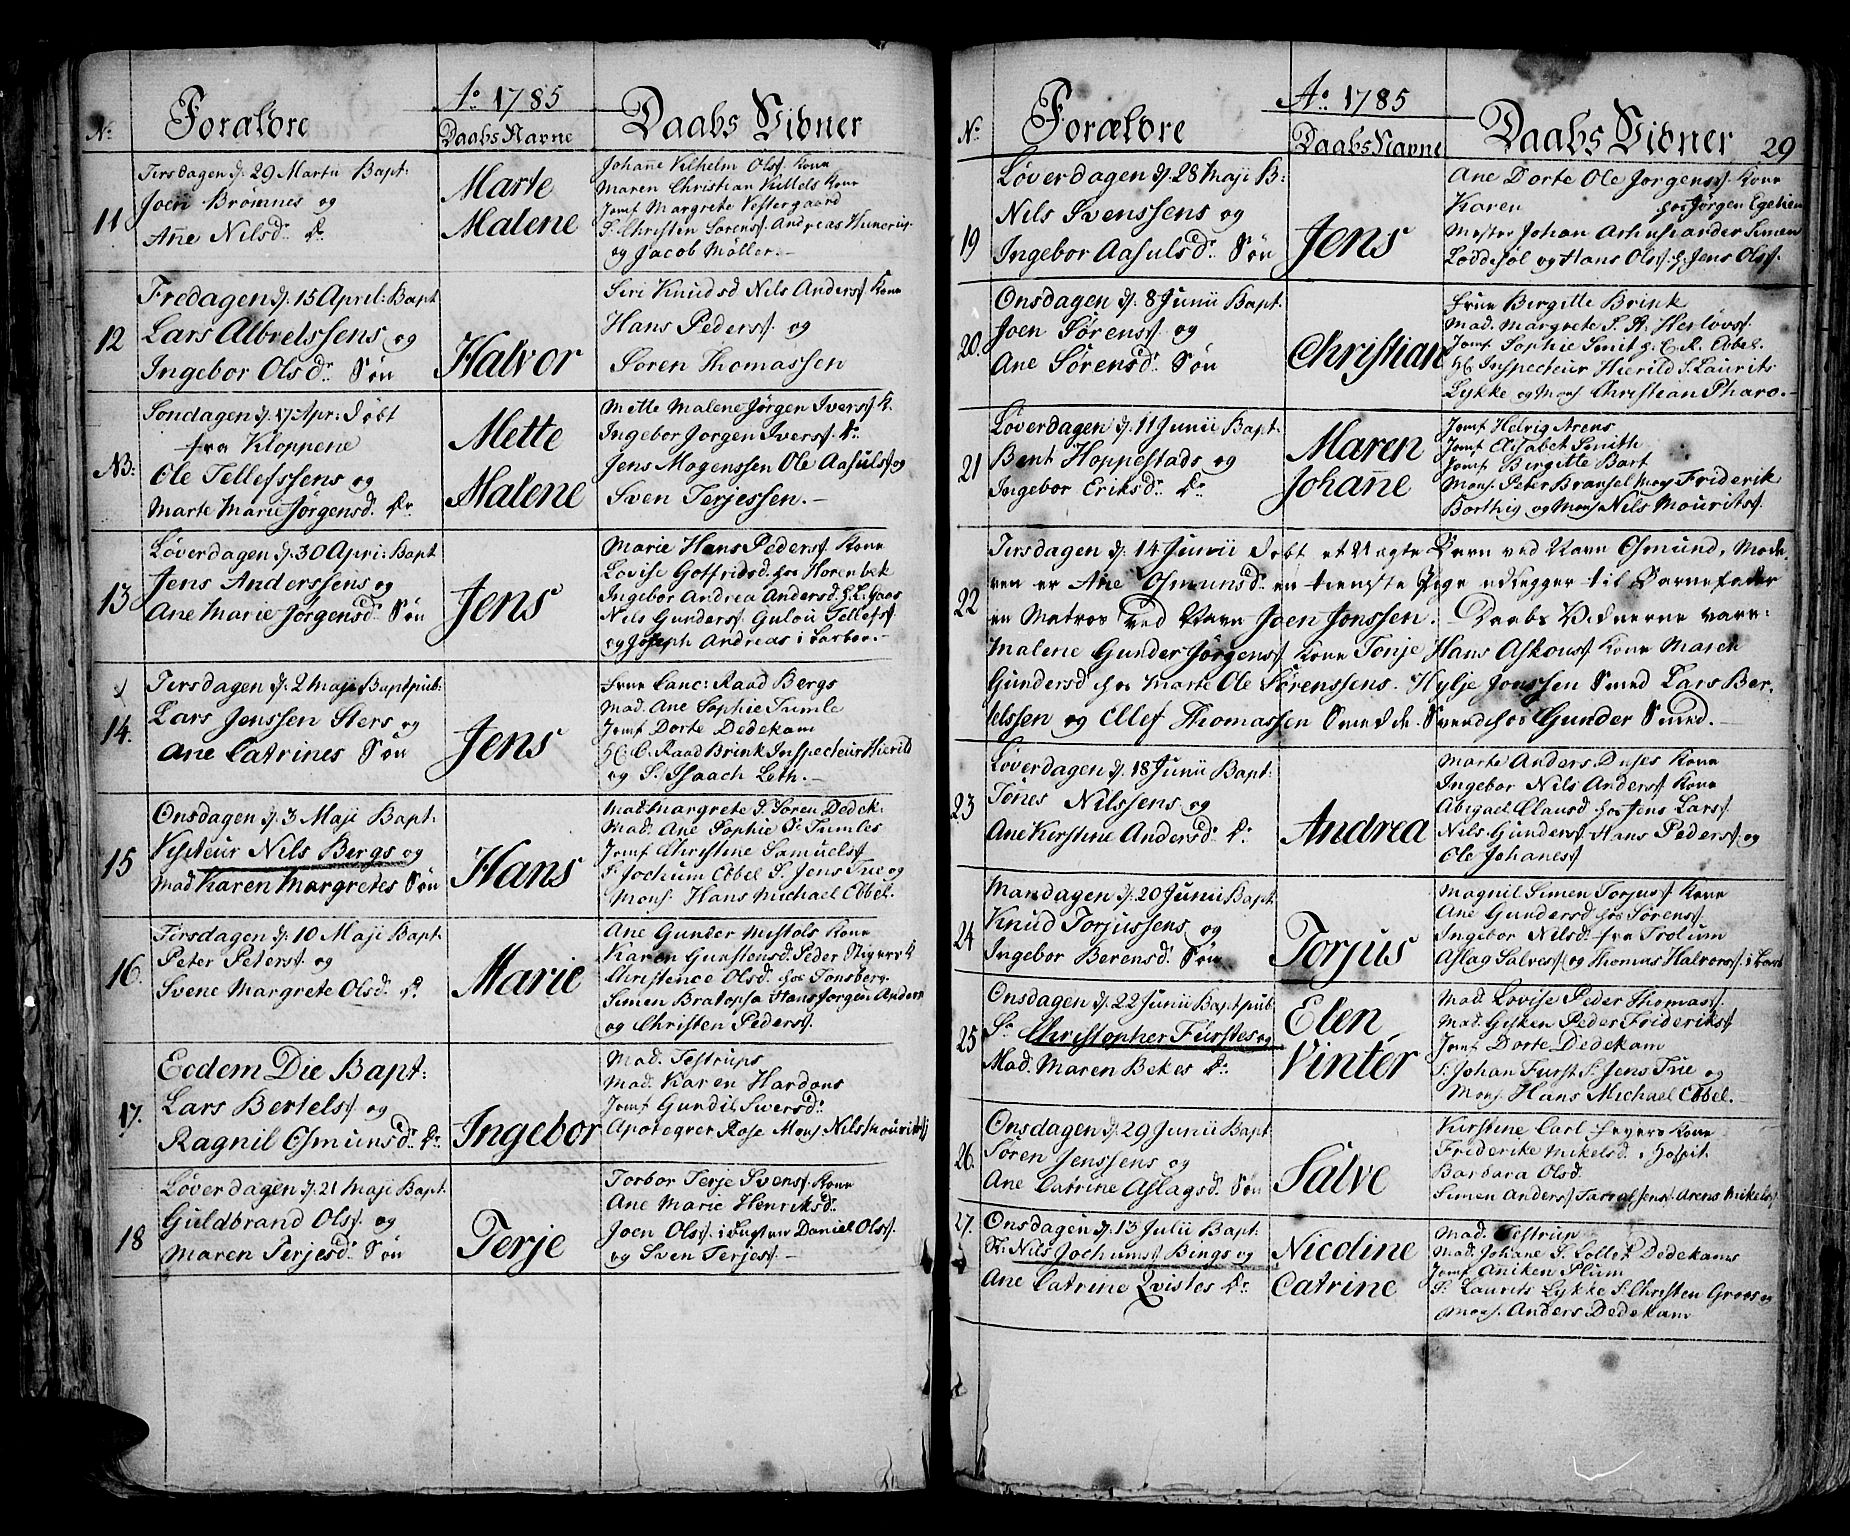 Ao. 1785
No. Forældre DaabsNavne Daabs Vidner
11
Tirsdagen d. 29 Martii Bapt:
Joen Bromnes og
Ane Nilsd. Dr.
Marte
Malene
Johane Vilhelm Olss. Kone
Maren Christian Kittels Kone
Jomf Margrete Vestergaard
S. Christen Sørens. Andreas
og Jacob Møller.-
12
Fredagen d. 15 April: Bapt
Lars Albretssens og
Ingebor Olsdr. Søn
Halvor
Siri Knudsd Nils Anderss Kone
Hans Peders. og
Søren Thomassen
NB:
Søndagen d. 17 Apr: døbt
fra Kloppene
Ole Tellefssens og
Marte Marie Jørgensd. Dr.
Mette
Malene
Mette Malene Jørgen Ivers. K.
Ingebor Jørgen Ivers. Dr.
Jens Mogenssen Ole Aasuls. og
Sven Terjessen.-
13
Løverdagen d. 30 Apri: Bapt
Jens Anderssens og
Ane Marie Jørgensdr. Søn
Jens
Marie Hans Peders. Kone
Lovise Gotfridsd. hos Horenbek
Ingebor Andrea Andersd. h. L. Haas
Nils Gunders. Gulou Tellefs.
og Joseph Andreas i Barboe.-
14.
Tirsdagen d. 2 Maji Bapt pub:
Lars Jenssen Sters og
Ane Catrines Søn
Jens
Frue Canc: Raad Bergs
Mad. Ane Sophie Tumle
Jomf Dorte Dedekam
H. C. Raad Brink Inspecteur Hierild
og S. Isaach Lyth.-
15
Onsdagen d. 3 Maji Bapt:
Visiteur Nils Bergs og
Mad Karen Margretes Søn
Hans
Mad Margrete S. Søren Dedek:
Mad. Ane Sophie Sr. Tumles
Jomf Christene Samuels.
S. Jochum Ebbel S. Jens Tue og
Mons. Hans Michael Ebbel.
16.
Tirsdagen d. 10 Maji Bapt:
Peter Peters. og
Svene Margrete Olsd. Dr.
Marie
Ane Gunder Mistols Kone
Karen Gunstensd. Peder
Christence Olsd. hos Tonsberg.
Simen Bratopsa Hans Jørgen Anders
og Christen Peders.
17.
Eodem Die Bapt:
Lars Bertels. og
Ragnil Osmunsd. Dr.
Ingebor
Mad. Testrups
Mad. Karen Hardons
Jomf Gundil Siversd.
Apoteqrer Rose Mons. Nils Mourits.
18
Løverdagen d. 21 Maji Bapt:
Guldbrand Ols. og
Maren Terjesdr. Søn
Terje
Torbor Terje Svens. Kone
Ane Marie Henriksdr.
Joen Ols. i Daniel Ols.
og Sven Terjes.-
Ao. 1785
No. Forældre DaabsNavne Daabs Vidner 29
19
Løverdagen d. 28 Maji B:
Nils Svenssens og
Ingebor Aasulsdr. Søn
Jens
Ane Dorte Ole Jørgens. Kone
Karen hos Jørgen Egelien
Mester Johan Simen
Løddesøl og Hans Ols. h. Jens Ols.
20.
Onsdagen d. 8 Junii Bapt.
Joen Sørens. og
Ane Sørensdr. Søn
Christian
Frue Bergitte Brink
Mad. Margrete S. P. Herlovs.
Jomf Sophie Smit h. C. R. Ebbel.
H. Inspecteur Hierild S. Laurits
Lykke og Mons Christian Pharo.-
21
Løverdagen d. 11 Junii Bapt.
Bent Hoppestads og
Ingebor Eriksdr. Dr.
Maren
Johane
Jomf Helvig Arens
Jomf Elisabet Smitte
Jomf Birgitte Bart
Mons. Peter Bransel Mons Friderik
Borthig og Mons Nils Mourits.
22
Tirsdagen d. 14 Junii døbt et Uægte Barn ved Navn Osmund, Mode-
ren er Ane Osmunsdr. en tieneste Pige udlegger til Barnefader
en Matros ved Navn Joen Jonssen.- Daabs Vidnerne vare:
Malene Gunder Jørgens. Kone Tonje Hans Askous. Kone Maren
Gundersd hos Marte Ole Sørenssens. Hylje Jonssen Smed Lars Ber-
telssen og Ellef Thomassen Smede Svend hos Gunder Smed.-
23
Løverdagen d. 18 Junii Bapt.
Tønes Nilssens og
Ane Kirstine Andersdr. Dr.
Andrea
Marte Anders Duses Kone
Ingebor Nils Anders. Kone
Abigael Clausd hos Jens Lars.
Nils Gunders. Hans Peders. og
Ole Johanes.
24
Mandagen d. 20 Junii Bapt.
Knud Torjussens og
Ingebor Berensd. Søn
Torjus
Magnil Simen Torjus. Kone
Ane Gundersd hos Sørens.
Ingebor Nilsd. fra Trolum
Aslag Salves. og Thomas Halvors. i Barb
25
Onsdagen d. 22 Junii Bapt pub
Sr. Christopher Fürstes og
Mad. Maren Bekes Dr.
Elen
Vinter
Mad. Lovise Peder Thomas.
Mad. Gisken Peder Frideriks.
Jomf Dorte Dedekam
S. Johan Fürst S. Jens Tue og
Mons. Hans Michael Ebbel.-
26.
Onsdagen d. 29 Junii Bapt
Søren Jenssens og
Ane Catrine Aslagsd. Søn
Salve
Kirstine Carl Kone
Friderike Mikelsd. i Hospit.
Barbara Olsd.
Simen Anders. Arens Mikels.
27.
Onsdagen d. 13 Julii Bapt:
Sr. Nils Jochums. Bings og
Ane Catrine Qvistes Dr.
Nicoline
Catrine
Mad. Testrup
Mad. Johane S. Lottes Dedekams
Jomf Aniken Plum
S. Laurits Lykke S. Christen Groos og
Mons. Anders Dedekam